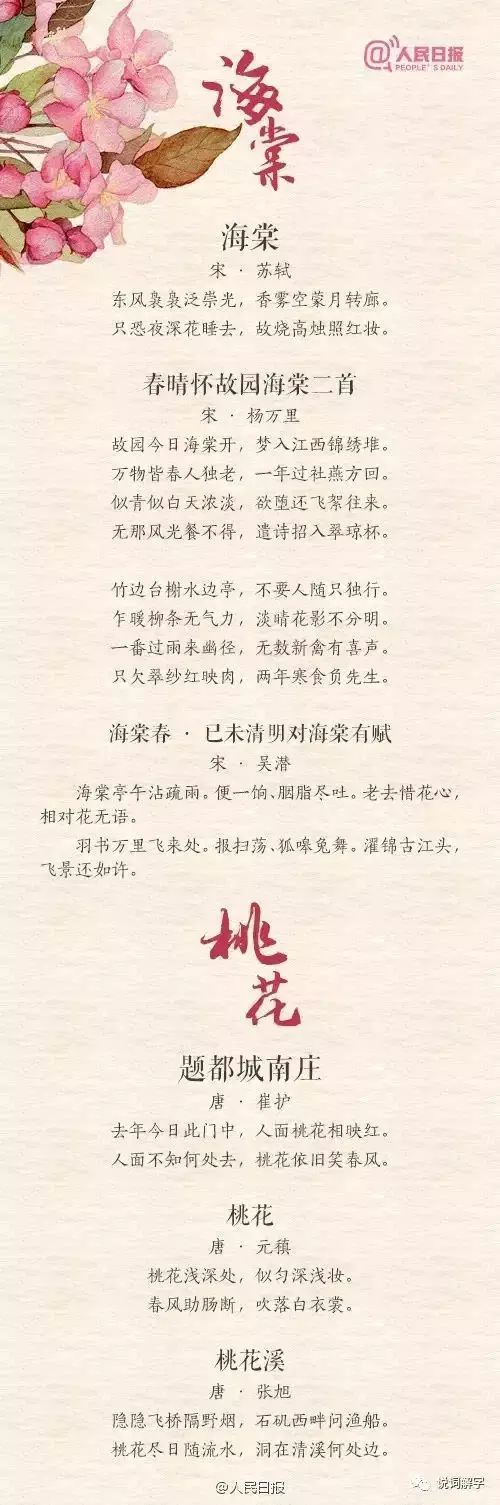 @人民日报
PEOPLE'S DAILY
海棠
海棠
宋 · 苏轼
东风袅袅泛崇光，香雾空蒙月转廊。
只恐夜深花睡去，故烧高烛照红妆。
春晴怀故园海棠二首
宋 · 杨万里
故园今日海棠开，梦入江西锦绣堆。
万物皆春人独老，一年过社燕方回。
似青似白天浓淡，欲堕还飞絮往来。
无那风光餐不得，遣诗招入翠琼杯。
竹边台榭水边亭，不要人随只独行。
乍暖柳条无气力，淡晴花影不分明。
一番过雨来幽径，无数新禽有喜声。
只欠翠纱红映肉，两年寒食负先生。
海棠春 · 已未清明对海棠有赋
宋 · 吴潜
海棠亭午沾疏雨。便一饷、胭脂尽吐。老去惜花心，
相对花无语。
羽书万里飞来处。报扫荡、狐嗥兔舞。濯锦古江头，
飞景还如许。
桃花
题都城南庄
唐 · 崔护
去年今日此门中，人面桃花相映红。
人面不知何处去，桃花依旧笑春风。
桃花
唐 · 元稹
桃花浅深处，似匀深浅妆。
春风助肠断，吹落白衣裳。
桃花溪
唐 · 张旭
隐隐飞桥隔野烟，石矶西畔问渔船。
桃花尽日随流水，洞在清溪何处边。
@人民日报
悦词解字